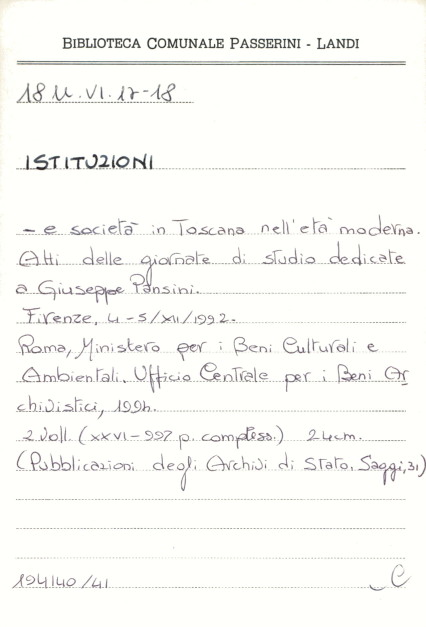 BIBLIOTECA COMUNALE PASSERINI - LANDI
18 U.VI.17-18
ISTITUZIONI
- e società in Toscana nell'età moderna.
Atti delle giornate di studio dedicate
a Giuseppe Pansini.
Firenze, 4-5/XII/1992.
Roma, Ministero per i Beni Culturali e
Ambientali. Ufficio Centrale per i Beni Ar
chivistici, 1994.
2 voll. (XXVI-997 p. compless.) 24cm.
(Pubblicazioni degli Archivi di Stato. Saggi, 31)
194140/41
C